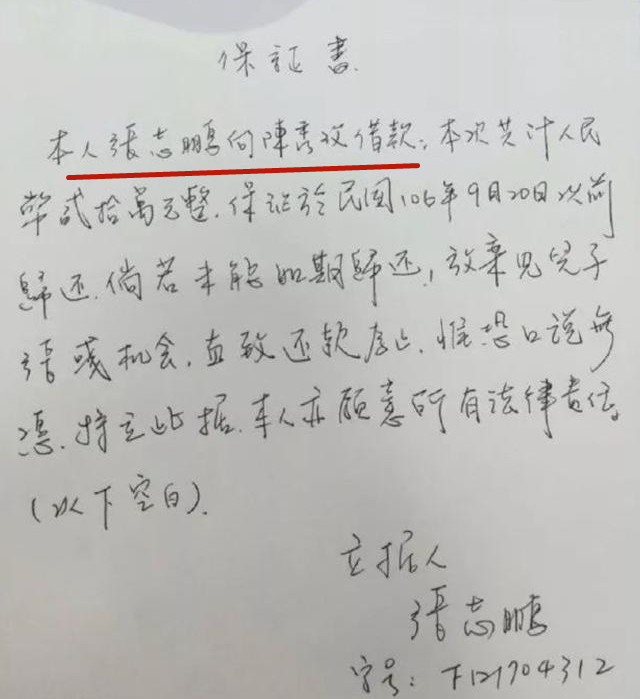 保证書.
本人張志鵬向陳秀玟借款:本次共计人民
幣贰拾萬元整.保证於民国106年9月20日以前
歸还.倘若未能如期歸还,放棄見兒子
張彧机会,直致还款為止.惟恐口说無
憑.特立此据.本人亦願意所有法律责任。
(以下空白).
立据人
張志鵬
字号:F121704312